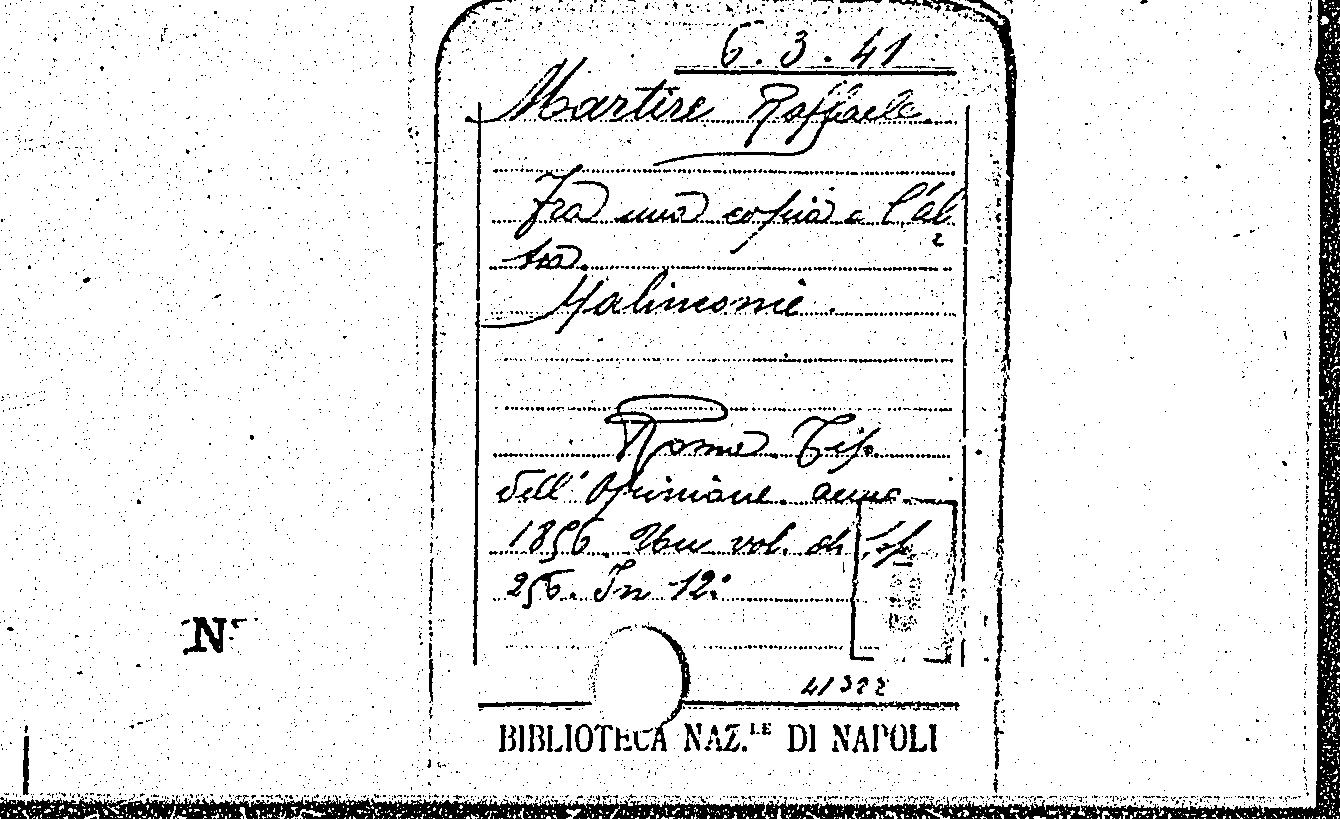 6.3.41
Martire Raffaele.
Fra una copia e l'al
tra.
Malinconie.
Roma. Tip.
dell'Opinione. anno
1856. Un vol. di pp.
256. In 12:
N
41322
BIBLIOTECA NAZ.LE DI NAPOLI